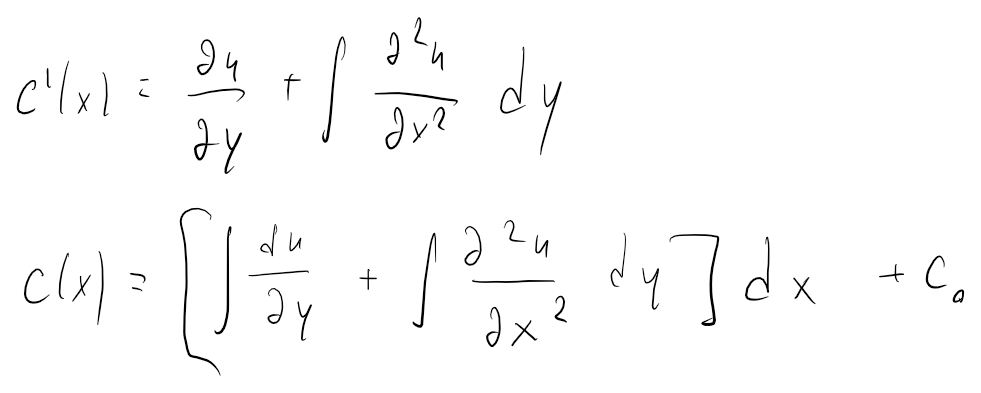 c'(x) = ∂u/∂y + ∫ ∂²u/∂x² dy
c(x) = [∫ du/∂y + ∫ ∂²u/∂x² dy] dx + C₀